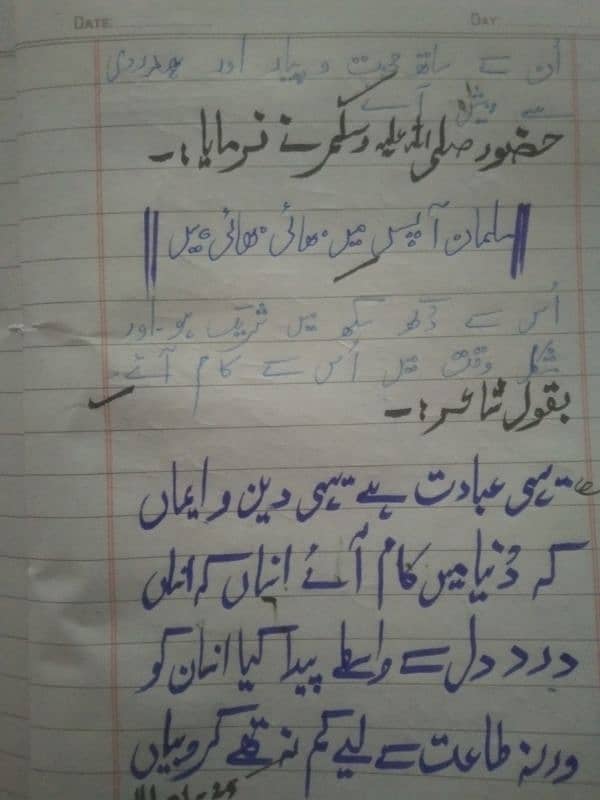 DATE DAY
اُن کے ساتھ محبت و پیار اور ہمدردی
سے پیش آئے
حضور صلی اللہ علیہ وسلم نے فرمایا :-
مسلمان آپس میں بھائی بھائی ہیں
اُس کے دُکھ سکھ میں شریک ہو۔ اور
مشکل وقت میں اُس کے کام آئے۔
بقول شاعر :-
یہی عبادت ہے یہی دین و ایماں
کہ دُنیا میں کام آئے انساں کہ انساں
درد دل کے واسطے پیدا کیا انسان کو
ورنہ طاعت کے لیے کم نہ تھے کروبیاں